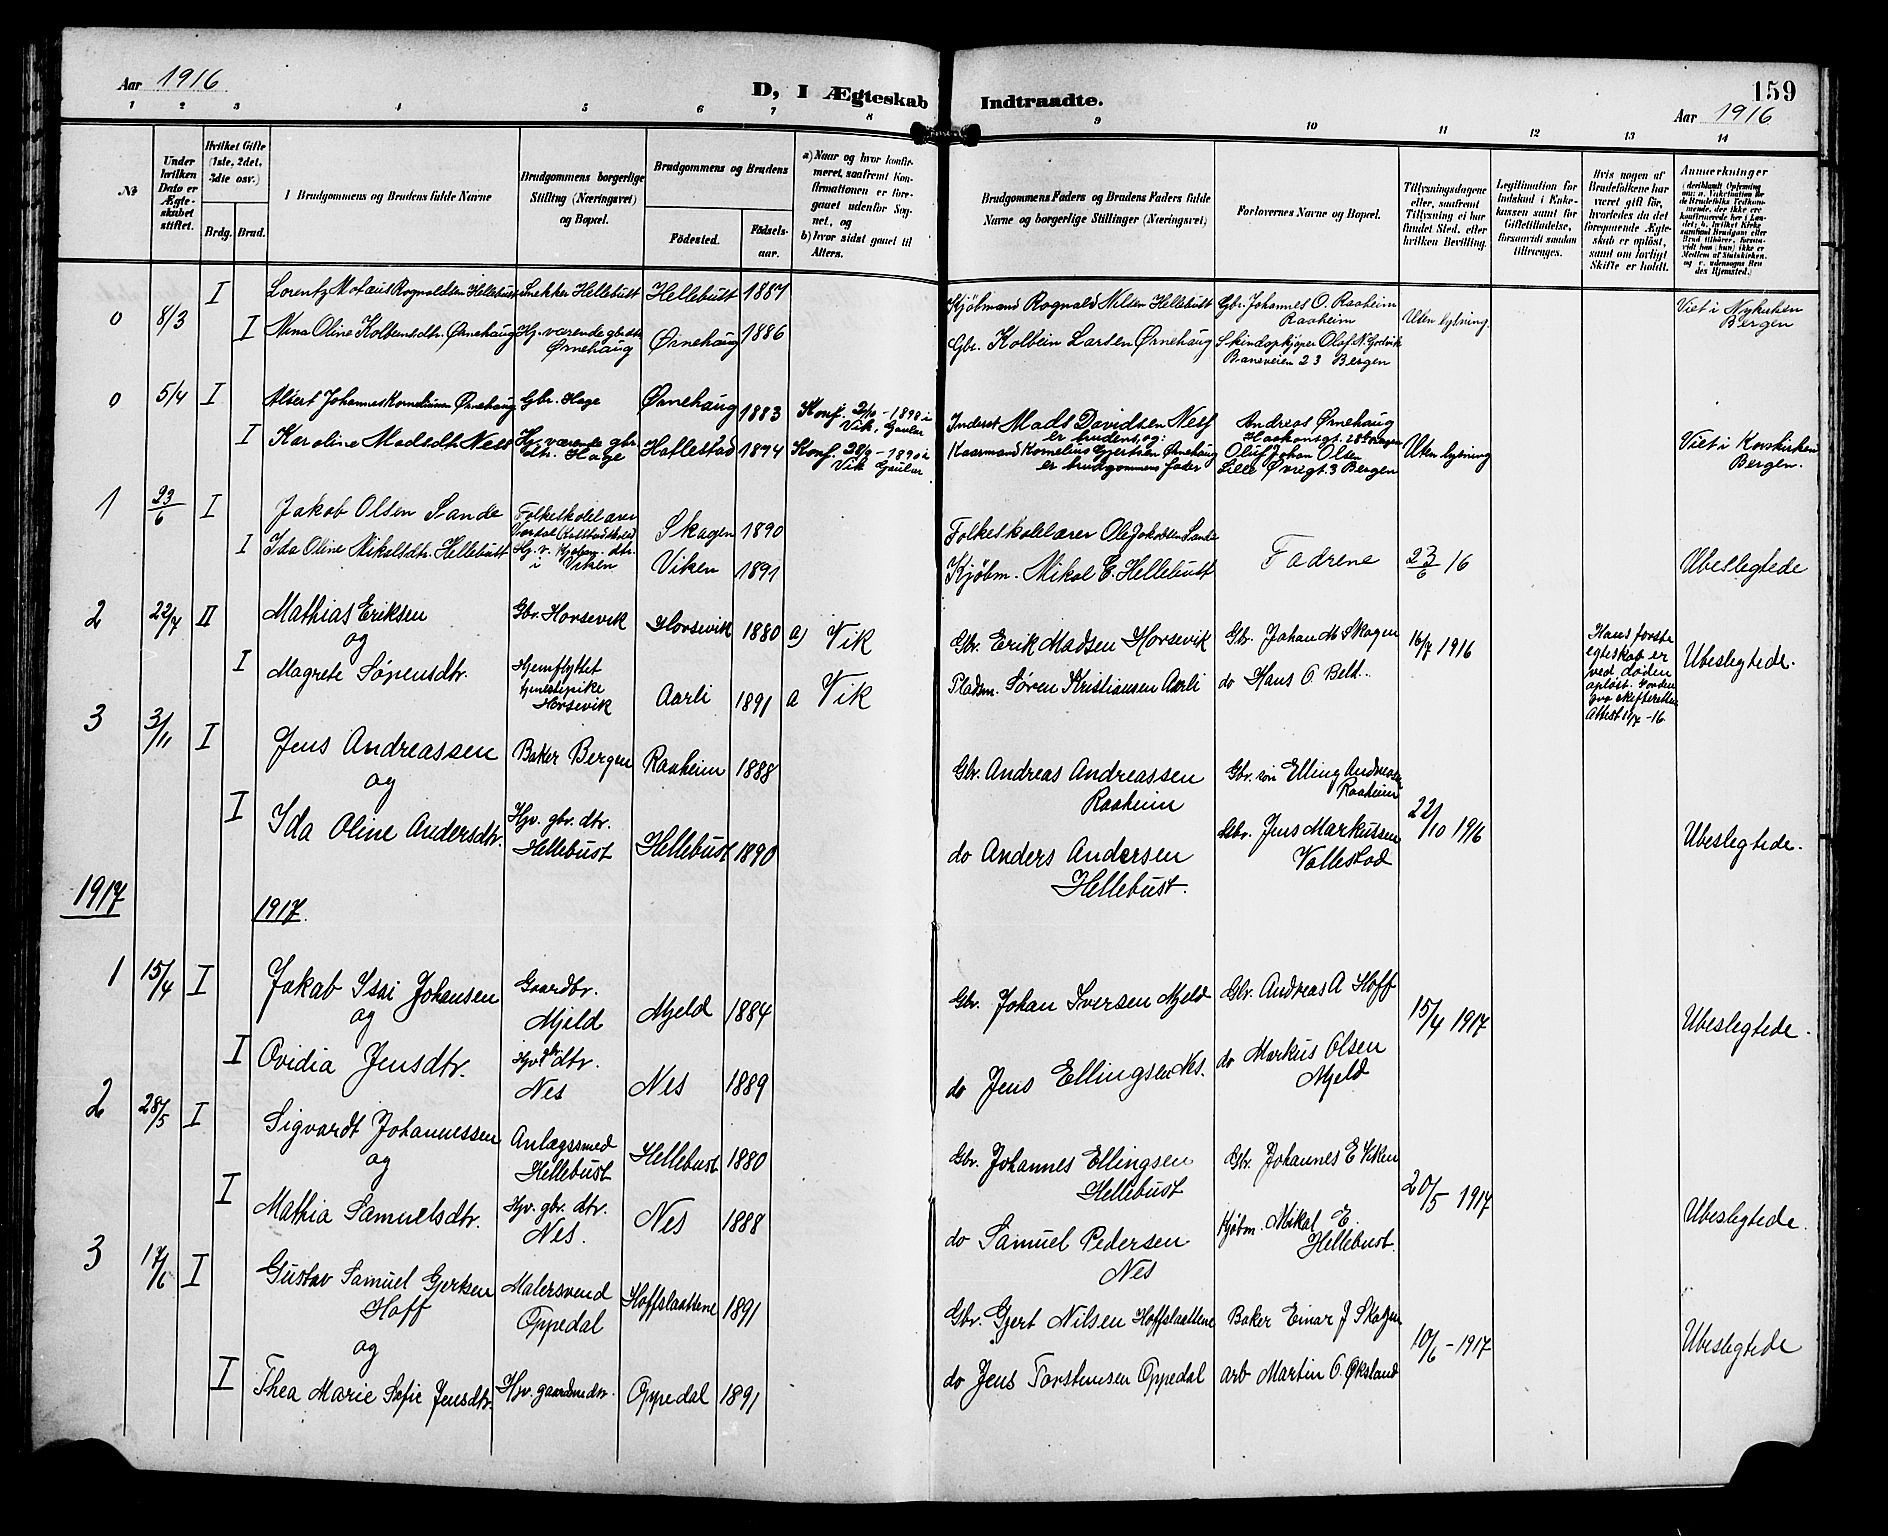 Aar 1916
D, I Ægteskab Indtraadte.
159
Aar 1916
1 2 3 4 5 6 7 8 9 10 11 12 13 14
№
Under
hvilken
Dato er
Ægte-
skabet
stiftet.
Hvilket Gifte
(1ste, 2det,
3die osv.)
Brdg. Brud.
Brudgommens og Brudens fulde Navne
Brudgommens borgerlige
Stilling (Næringsvei)
og Bopæl.
Brudgommens og Brudens
Födested.
Födsels-
aar.
a) Naar og hvor konfir-
meret, saafremt Kon-
firmationen er fore-
gaaet udenfor Sog-
net, og
b) hvor sidst gaaet til
Alters.
Brudgommens Faders og Brudens Faders fulde
Navne og borgerlige Stillinger (Næringsvei)
Forlovernes Navne og Bopæl.
Tillysningsdagene
eller, saafremt
Tillysning ei har
fundet Sted, efter
hvilken Bevilling.
Legitimation for
Indskud i Enke-
kassen samt for
Giftetilladelse,
forsaavidt saadan
tiltrænges.
Hvis nogen af
Brudefolkene har
været gift för,
hvorledes da det
foregaaende Ægte-
skab er oplöst,
samt om lovligt
Skifte er holdt.
Anmærkninger
0 8/3 I Lorentz Rognaldsen Hellebust Snekker Hellebust Hellebust 1887 Kjøbmand Rognald Nilsen Hellebust Gbr. Johannes O. Raaheim
Raaheim
Uten lysning. Viet i Nykirken
Bergen
I Nina Oline Kolbensdtr. Ørnehaug Hj. værende gb.dtr.
Ørnehaug
Ørnehaug 1886 Gbr. Kolbein Larsen Ørnehaug Skindopkjøper Olaf N.
23 Bergen
0 5/4 I Albert Johannes Ørnehaug Gbr. Hage Ørnehaug 1883 Konf. 2/10 - 1898 i
Vik, Gaular
Inderst Mads Davidsen Ness
er brudens, og:
Andreas Ørnehaug
I Karoline Madsdtr. Ness Hj. værende gbr.
dtr. Hage
Hatlestad 1894 Konf. Vik Gaular
Kaarmand Kornelius Gjertsen Ørnehaug
er brudgommens fader
Oluf Johan Olsen
Lille Øvregt. 3 Bergen
Uten lysning Viet i Korskirken
Bergen.
1 23/6 I Jakob Olsen Sande Folkeskolelærer
Skagen 1890 Folkeskolelærer Ole Jakobsen Sande
I Ida Oline Mikalsdtr. Hellebust Hj. v. Kjøbm. dtr.
i Viken
Viken 1891 Kjøbm. Mikal E. Hellebust Fædrene 23/6 16 Ubeslegtede
2 22/7 II Mathias Eriksen
og
Gbr. Horsevik Horsevik 1880 a) Vik Gbr. Erik Madsen Horsevik Gb. Johan M Skagen 16/7 1916
Hans første
egteskab er
ved døden
opløst.
Attest -16
Ubeslegtede.
I Magrete Sørensdtr. Hjemflyttet
tjenestepike
Horsevik
Aarli 1891 a Vik Pladsm. Søren Kristiansen Aarli do Hans O Belt.
3 3/11 I Jens Andreassen
og
Baker Bergen Raaheim 1888 Gbr. Andreas Andreassen
Raaheim
Gbr. søn Elling Andreassen
Raaheim
22/10 1916
I Ida Oline Andersdtr. Hjv. gbr. dtr.
Hellebust
Hellebust 1890 do Anders Andersen
Hellebust.
Gbr. Jens Markussen
Vallestad
Ubeslegtede.
1917
1917.
1 15/4 I Jakob Isai Johansen
og
Gaardbr.
Mjeld
Mjeld 1884 Gbr. Johan Iversen Mjeld Gbr. Andreas A Hoff 15/4 1917 Ubeslegtede.
I Ovidia Jensdtr. Hjv. gbr dtr.
Nes
Nes 1889 do Jens Ellingsen Nes. do Markus Olsen
Mjeld
2 28/5 I Sigvardt Johannessen
og
Anlægssmed
Hellebust
Hellebust 1880 Gbr. Johannes Ellingsen
Hellebust
Gbr. Johannes E Viken 20/5 1917
I Mathia Samuelsdtr. Hjv. gbr. dtr.
Nes.
Nes 1888 do Samuel Pedersen
Nes
Kjøbm. Mikal E.
Hellebust.
Ubeslegtede.
3 17/6 I Gustav Samuel Gjertsen
Hoff
og
Malersvend
Oppedal
Hoffslaattene 1891 Gbr. Gjert Nilsen Hoffslaattene Baker Einar J Skagen 10/6 - 1917 Ubeslegtede
I Thea Marie Sofie Jensdtr. Hjv. gaardmdtr. Oppedal 1891 do Jens Torstensen Oppedal arb Martin O. Øksland